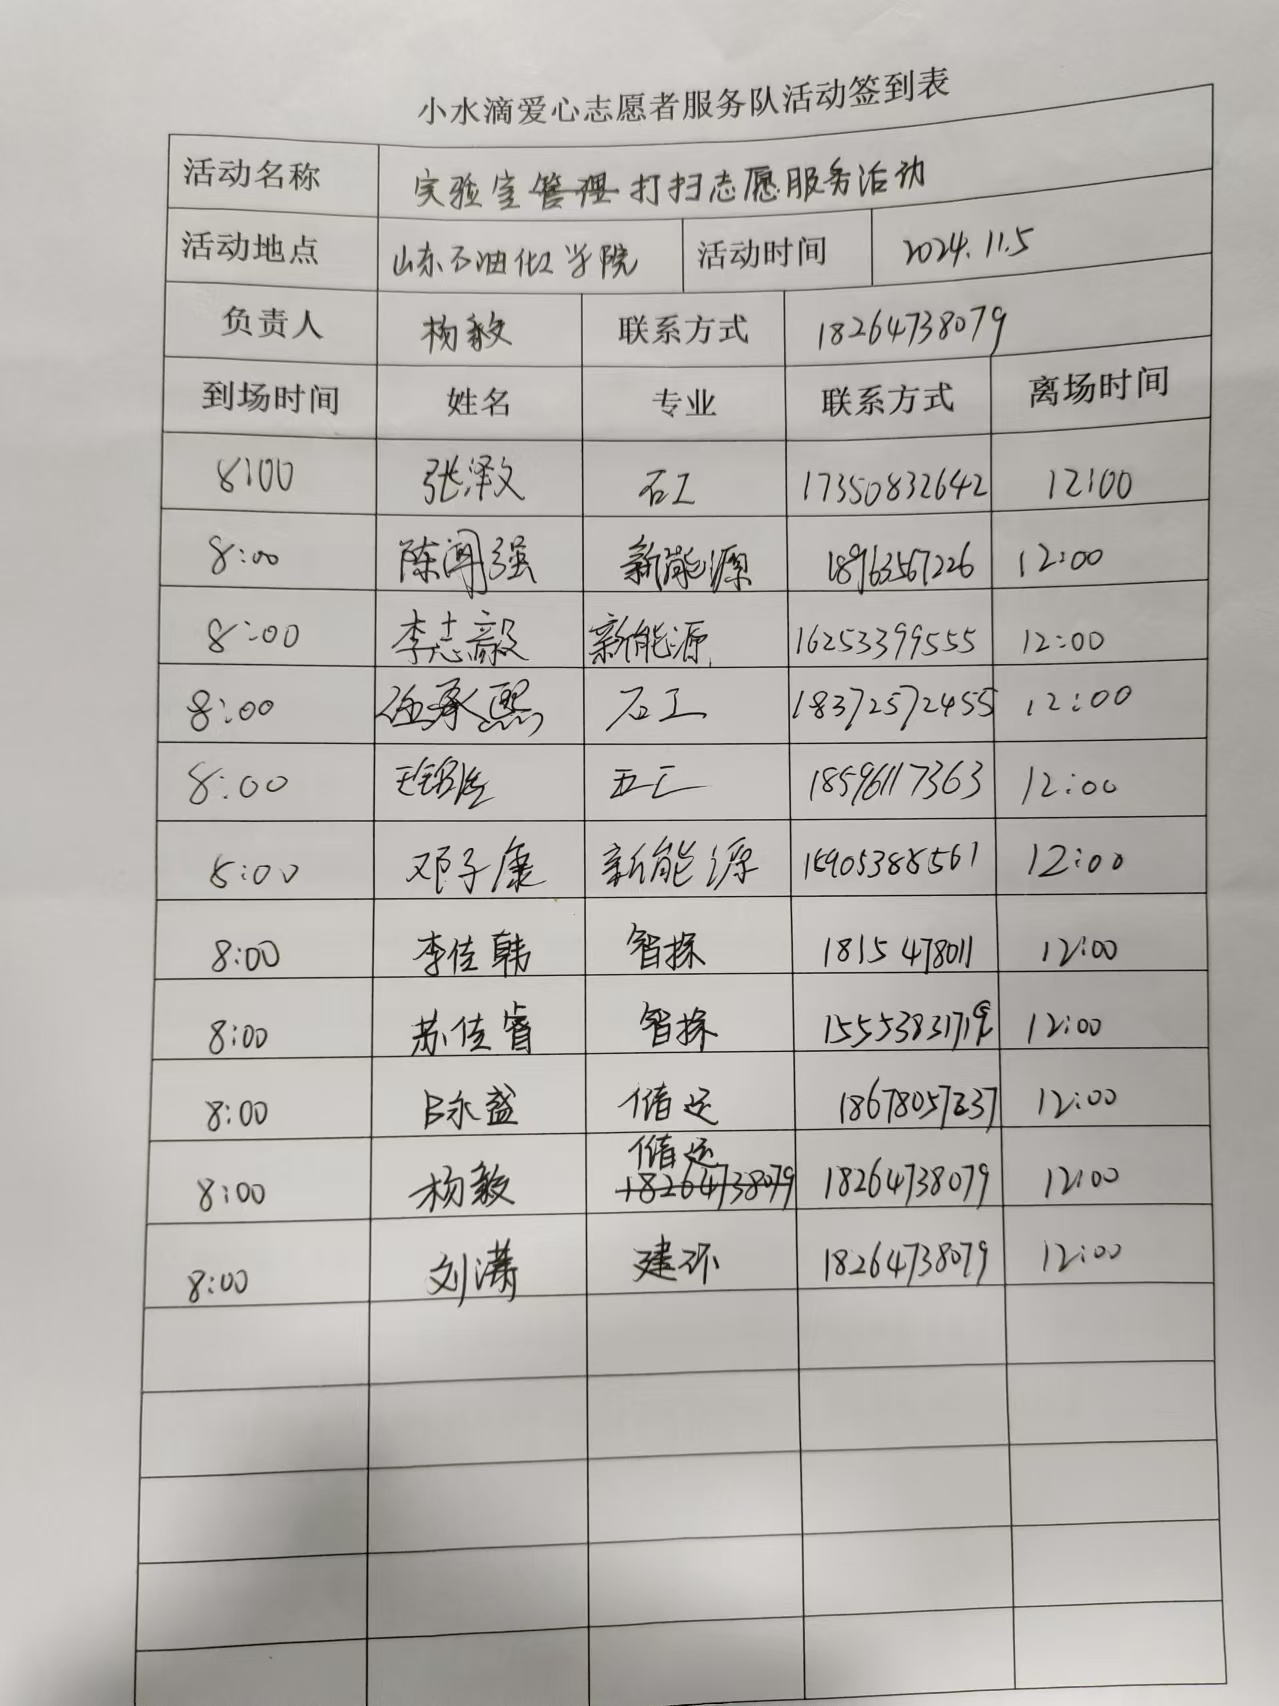 小水滴爱心志愿者服务队活动签到表
活动名称 实验室管理打扫志愿服务活动
活动地点 山东石油化工学院 活动时间 2024.11.5
负责人 杨毅 联系方式 18264738079
到场时间 姓名 专业 联系方式 离场时间
8:00 张泽文 石工 17350832642 12:00
8:00 陈闻强 新能源 18963567226 12:00
8:00 李志毅 新能源 16253399555 12:00
8:00 伍承熙 石工 18372572455 12:00
8:00 石工 18596117363 12:00
8:00 邓子康 新能源 15905388561 12:00
8:00 李佳韩 智探 1815478011 12:00
8:00 苏佳睿 智探 12:00
8:00 永盛 储运 12:00
储运
8:00 杨毅 18264738079 18264738079 12:00
8:00 刘满 建环 18264738079 12:00